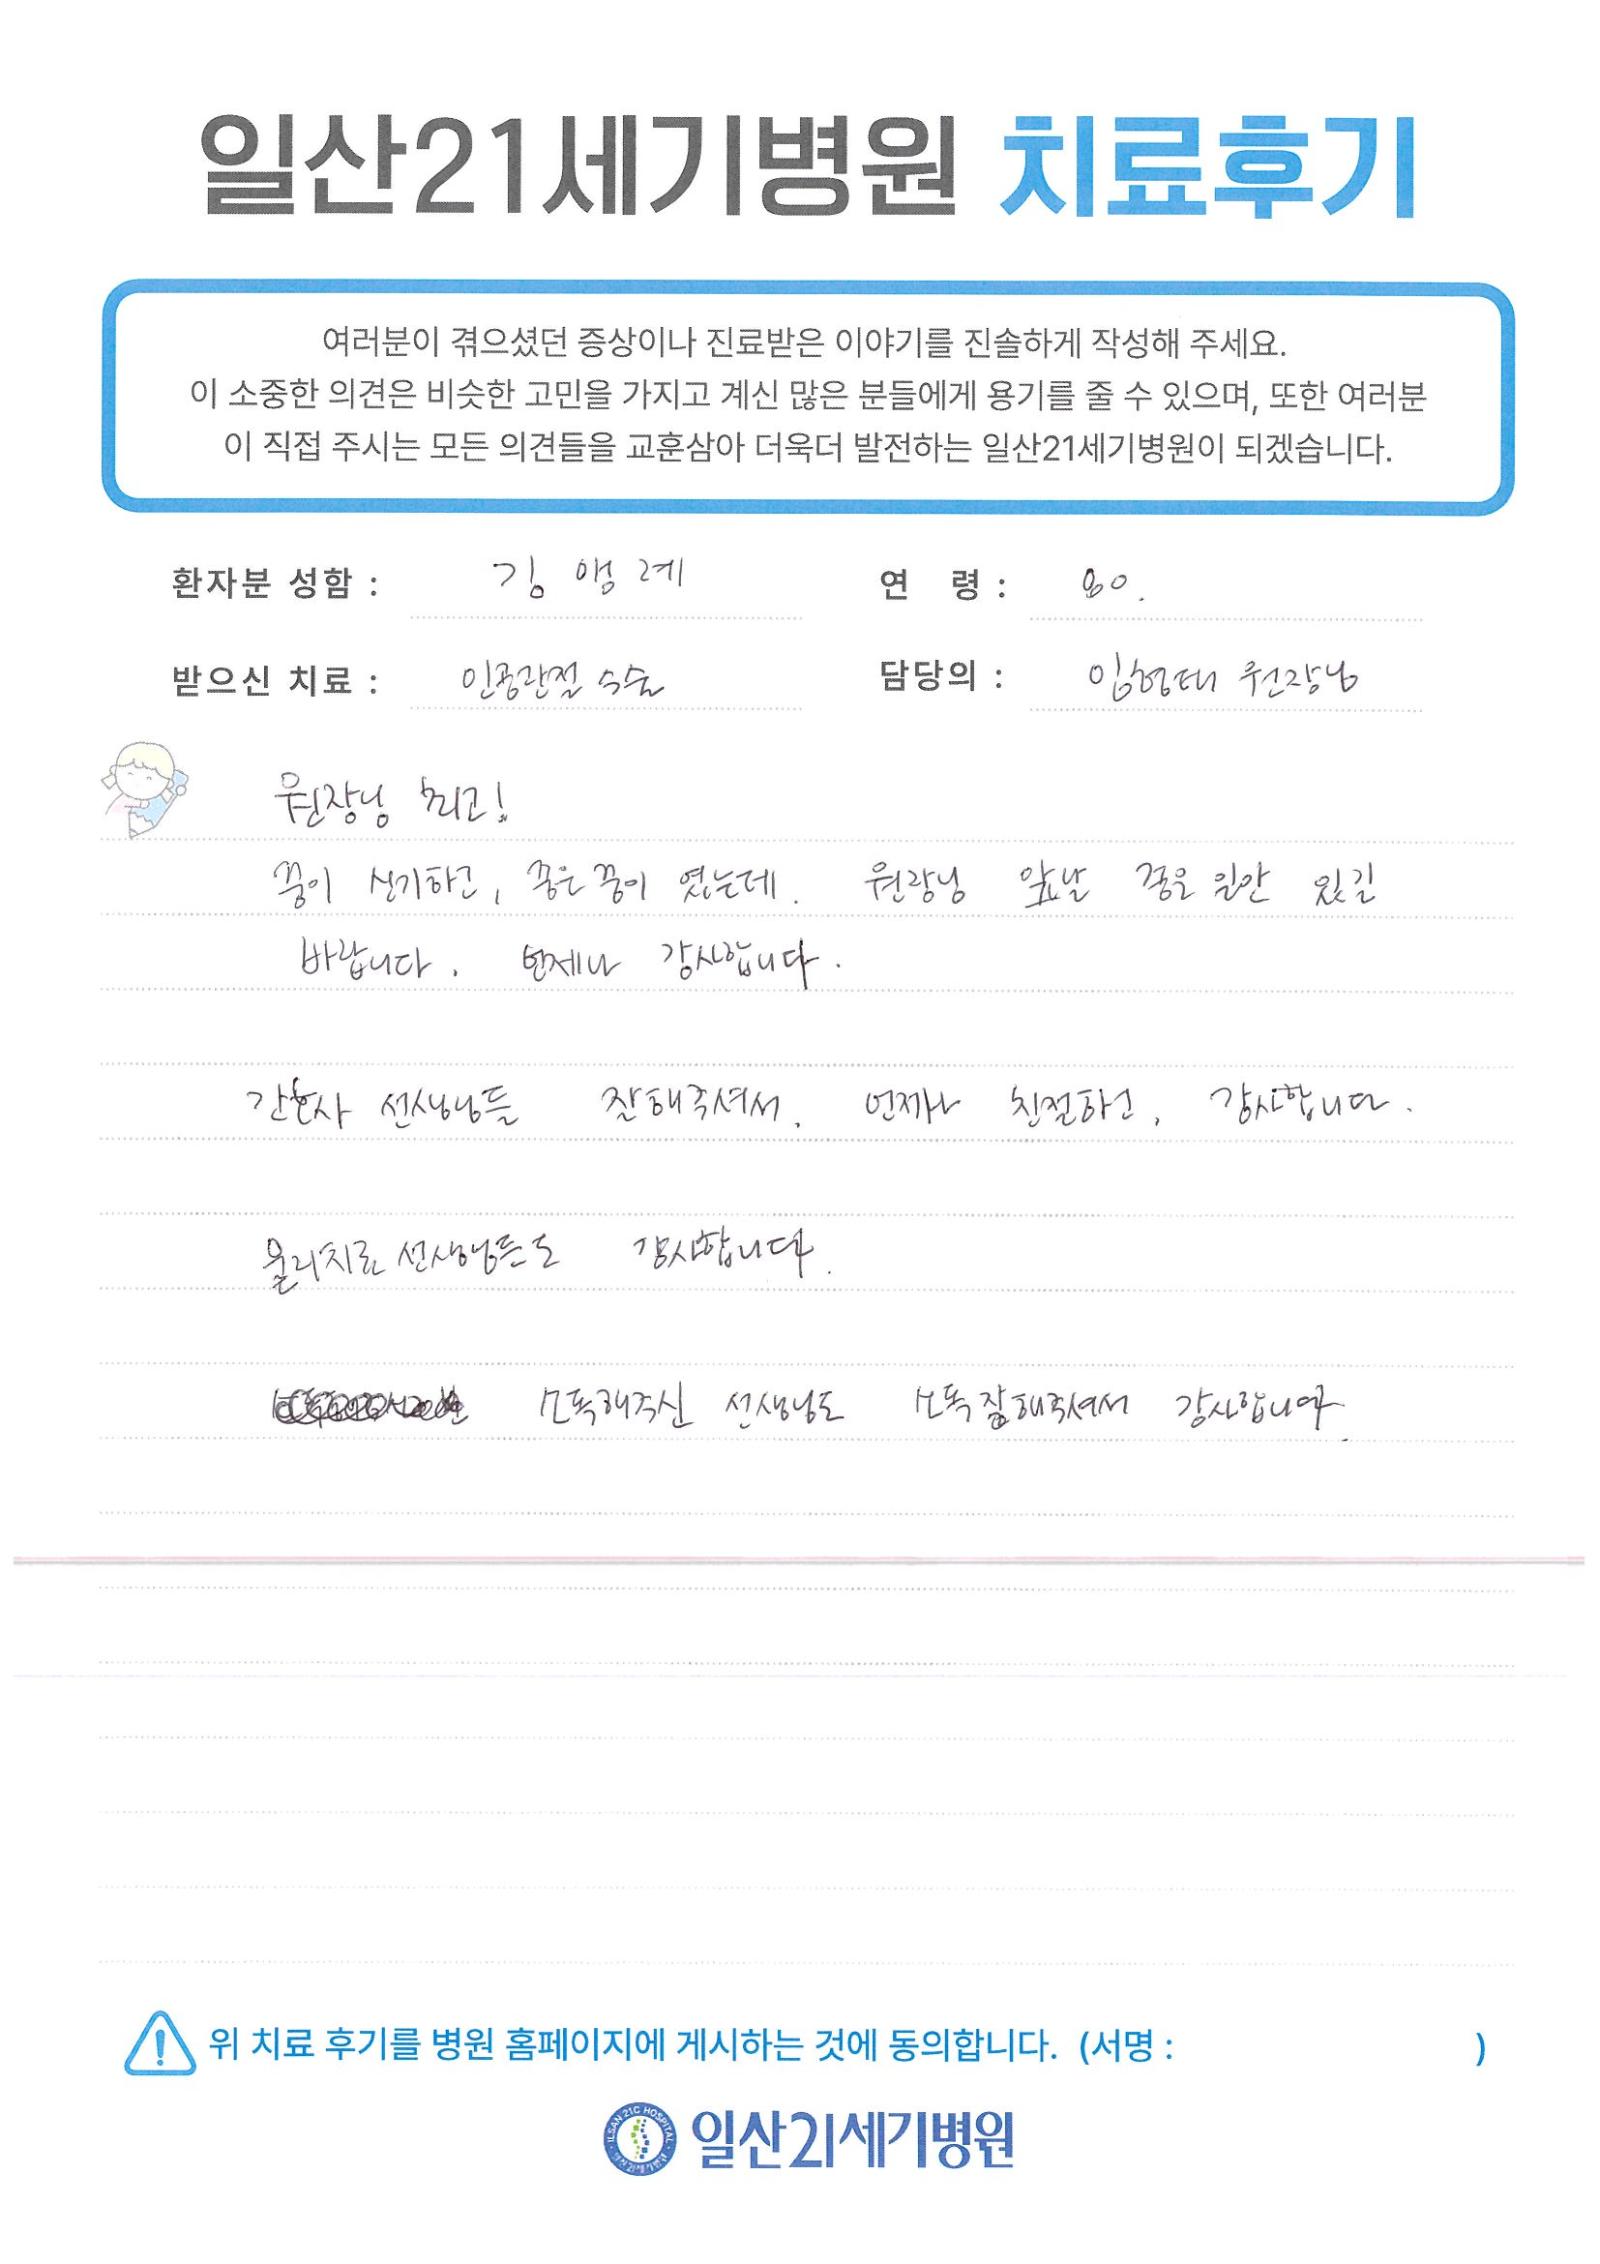 일산21세기병원 치료후기
여러분이 겪으셨던 증상이나 진료받은 이야기를 진솔하게 작성해 주세요.
이 소중한 의견은 비슷한 고민을 가지고 계신 많은 분들에게 용기를 줄 수 있으며, 또한 여러분
이 직접 주시는 모든 의견들을 교훈삼아 더욱더 발전하는 일산21세기병원이 되겠습니다.
환자분 성함 : 김 앵 례 연 령 : 80.
받으신 치료 : 인공관절 수술 담당의 : 임형태 원장님
원장님 최고!
꿈이 신기하고, 좋은 꿈이 였는데. 원장님 앞날 좋은 일만 있길
바랍니다. 언제나 감사합니다.
간호사 선생님들 잘해주셔서. 언제나 친절하고, 감사합니다.
물리치료 선생님들도 감사합니다.
소독해주신 선생님도 소독 잘해주셔서 감사합니다.
위 치료 후기를 병원 홈페이지에 게시하는 것에 동의합니다. (서명 : )
ILSAN 21C HOSPITAL
일산21세기병원
일산21세기병원